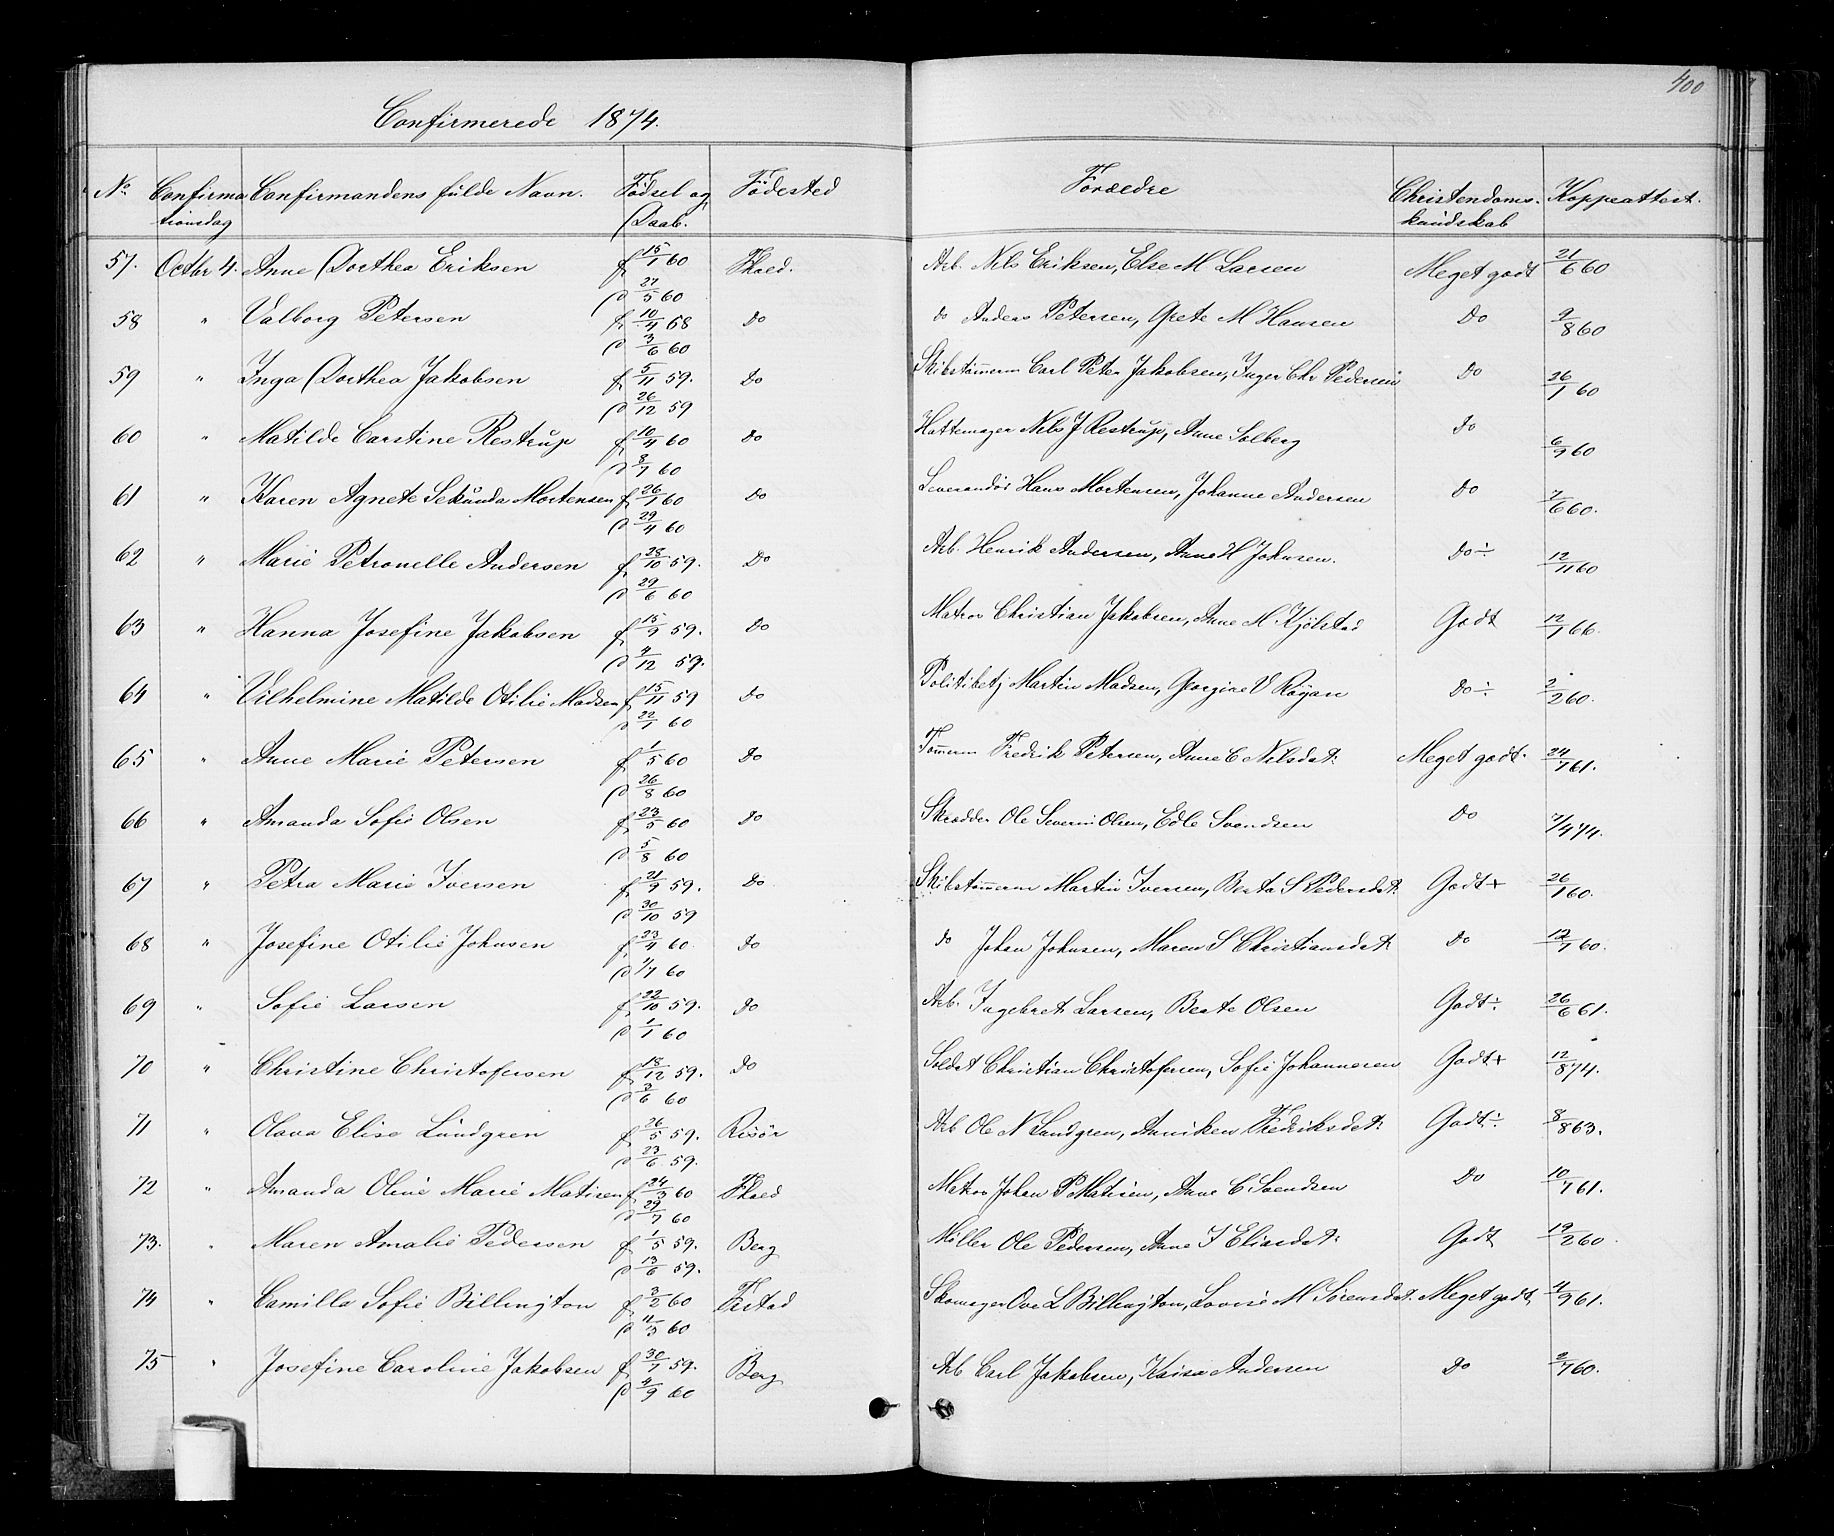 400
Confirmerede 1874.
No Confirmationsdag Confirmandens fulde Navn. Födsel og Daab. Födested Forældre Christendoms-kundskab Koppeattest.
57. Octbr 4. Anne Dorthea Eriksen f 15/1 60 D 27/5 60 Fhald. Arb. Nils Eriksen, Else M Larsen Meget godt 21/6 60
58 " Valborg Petersen f 10/4 68 D 3/6 60 Do do Anders Petersen, Grete M Hansen Do 9/8 60
59 " Inga Dorthea Jakobsen f 5/11 59. D 26/12 59 Do Skibstömerm Carl Peter Jakobsen, Inger Chr Pedersen Do 26/1 60
60 " Matilde Carstine Restrup f 10/4 60 D 8/7 60 Do Hattemager Nils J Restrup, Anne Solberg Do 6/9 60
61 " Karen Agnete Sekunda Mortensen f 26/1 60 D 29/4 60 Do Leverandör Hans Mortensen, Johanne Andersen Do 7/6 60.
62 " Marie Petronelle Andersen f 28/10 59. D 29/6 60 Do Arb. Henrik Andersen, Anne H Johnsen. Do ÷ 12/11 60
63 " Hanna Josefine Jakobsen f 15/9 59. D 4/12 59. Do Matros Christian Jakobsen, Anne M. Kjölstad Godt 12/1 66.
64 " Vilhelmine Matilde Otilie Madsen f 15/11 59 D 22/1 60 Do Politibetj Martin Madsen, Georgine V Do ÷ 2/2 60.
65 " Anne Marie Petersen f 1/5 60 D 26/8 60 Do Tömerm Fredrik Petersen, Anne C Nilsdat: Meget godt. 24/7 61.
66 " Amanda Sofie Olsen f 23/5 60 D 5/8 60 Do Skrædder Ole Severin Olsen, Edle Svendsen Do 7/4 74.
67 " Petra Marie Iversen f 21/9 59. D 30/10 59 Do Skibstömerm Martin Iversen, Berta S Pedersdat: Godt + 26/1 60.
68 " Josefine Otilie Johnsen f 23/4 60 D 1/7 60 Do do Johan Johnsen, Maren S Christiansdat: Do 12/7 60.
69 " Sofie Larsen f 22/10 59. D 1/1 60 Do Arb. Ingebret Larsen, Beate Olsen Godt ÷ 26/6 61.
70 " Christine Christofersen f 18/12 59. D 3/6 60 Do Soldat Christian Christofersen, Sofie Johannesen Godt + 12/8 74.
71 " Olava Elise Lundgren f 26/5 59. D 23/6 59. Risör Arb Ole N Lundgren, Anniken Fredriksdat: Godt ÷ 8/8 63.
72 " Amanda Oline Marie Matisen f 24/3 60 D 29/7 60 Fhald Matros Johan P Matisen, Anne C. Svendsen Do 10/7 61.
73. " Maren Amalie Pedersen f 1/5 59. D 13/6 59. Berg Möller Ole Pedersen, Anne I Eliasdat: Godt 19/2 60.
74 " Camilla Sofie Billington f 3/2 60 D 11/3 60 Fistad Skomager Ove L Billington, Lovise M Sörensdat: Meget godt 4/9 61.
75 " Josefine Caroline Jakobsen f 30/7 59. D 4/9 60 Berg Arb Carl Jakobsen, Kaisa Andersen Do 2/7 60.